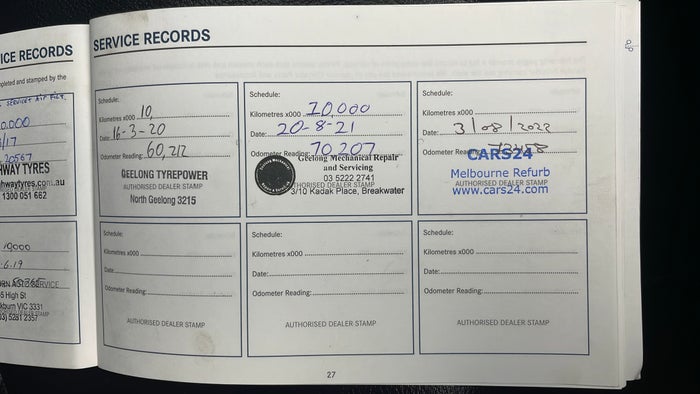 ICE RECORDS
pleted and stamped by the
0.000
/17
20567
HWAY TYRES
hwaytyres.com.au
1300 051 662
10000
-6.19
5 High St
kburn VIC 3331
03) 5281 2357
SERVICE RECORDS
Schedule:
Kilometres x000 10,
Date: 16-3-20
Odometer Reading: 60,212
GEELONG TYREPOWER
AUTHORISED DEALER STAMP
North Geelong 3215
Schedule:
Kilometres x000 10,000
Date: 20-8-21
Odometer Reading: 70 207
Geelong Mechanical Repair
and Servicing
03 5222 2741
AUTHORISED DEALER STAMP
3/10 Kadak Place, Breakwater
Schedule:
Kilometres x000
Date: 3/08/2022
Odometer Reading:
CARS24
Melbourne Refurb
AUTHORISED DEALER STAMP
www.cars24.com
Schedule:
Kilometres x000
Date:
Odometer Reading:
AUTHORISED DEALER STAMP
Schedule:
Kilometres x000
Date:
Odometer Reading:
AUTHORISED DEALER STAMP
Schedule:
Kilometres x000
Date:
Odometer Reading:
AUTHORISED DEALER STAMP
27